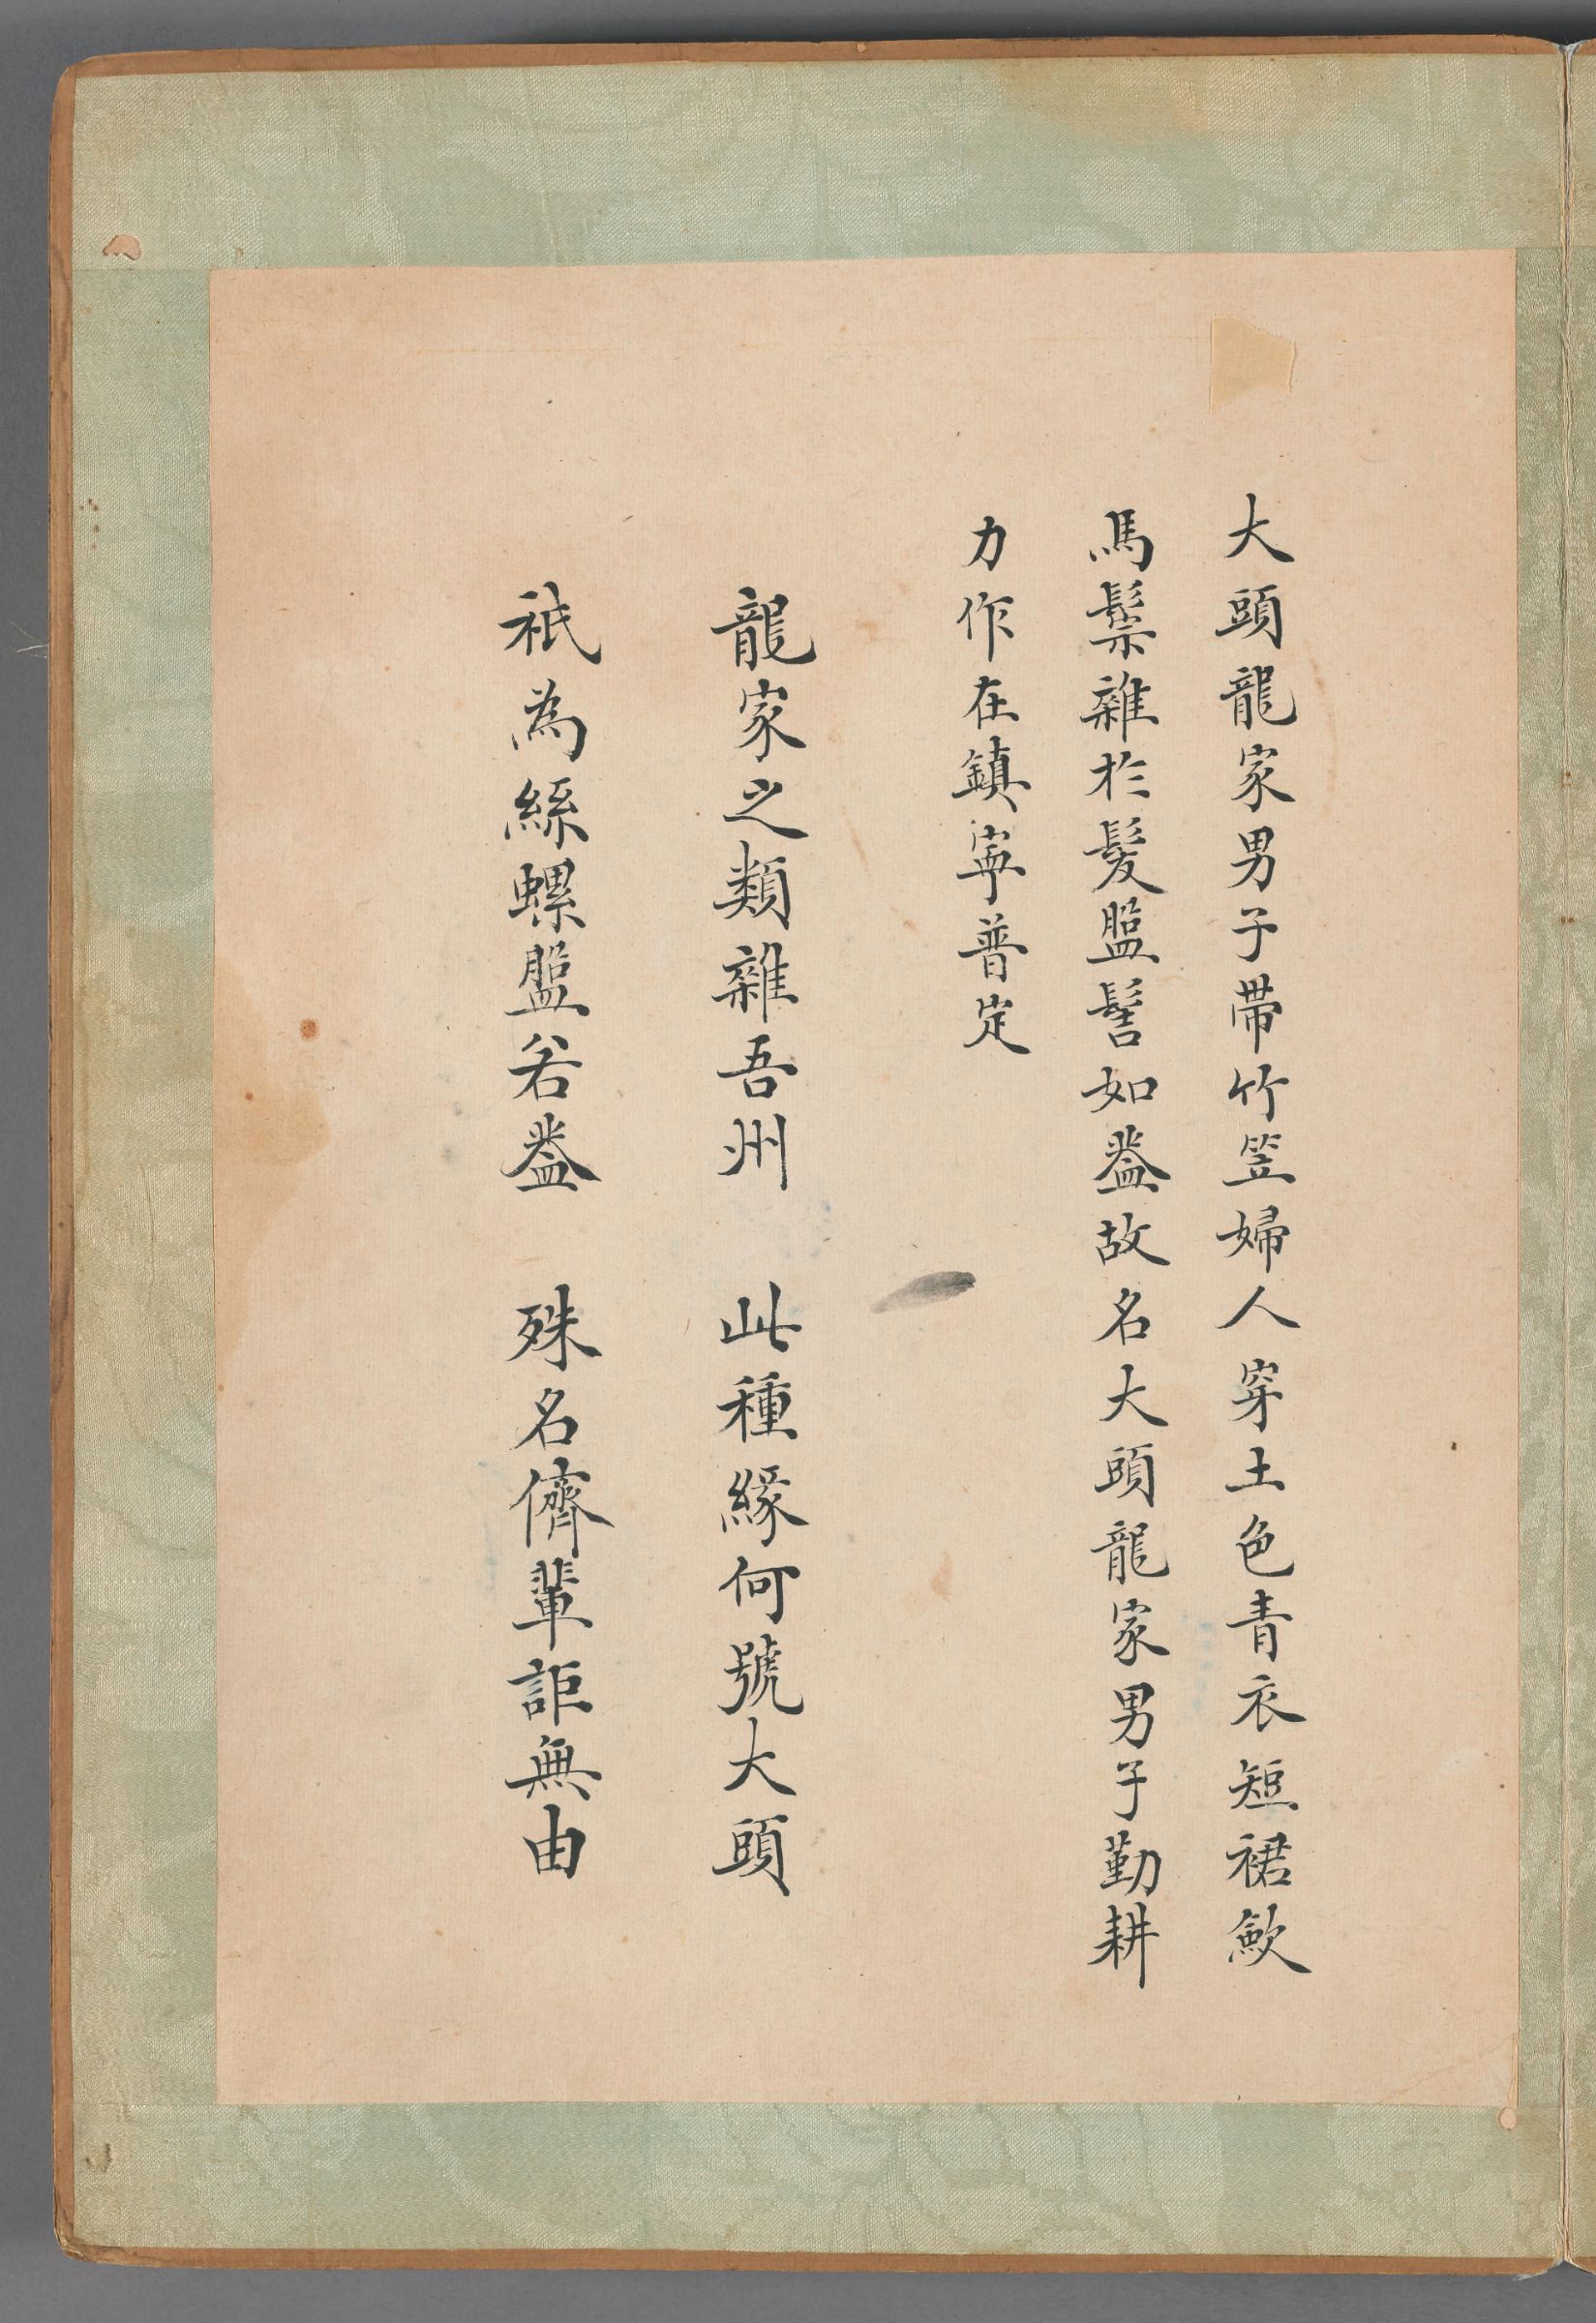 大頭龍家男子帶竹笠婦人穿土色青衣短裙歛
馬鬃雜於髮盤髻如蓋故名大頭龍家男子勤耕
力作在鎮寧普定
龍家之類雜吾州 此種緣何號大頭
祇為絲螺盤若蓋 殊名儕輩詎無由